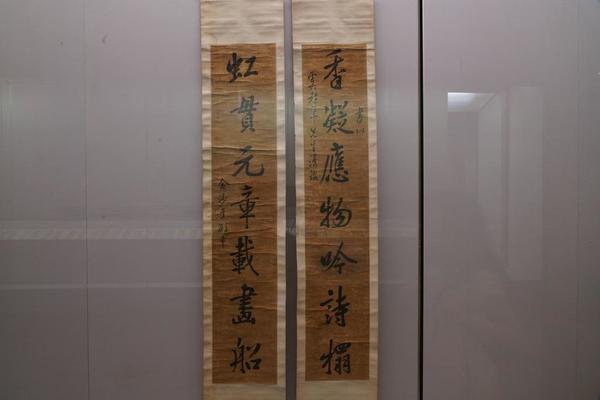 香凝應物吟詩榻
書以
虹貫元章載畫船